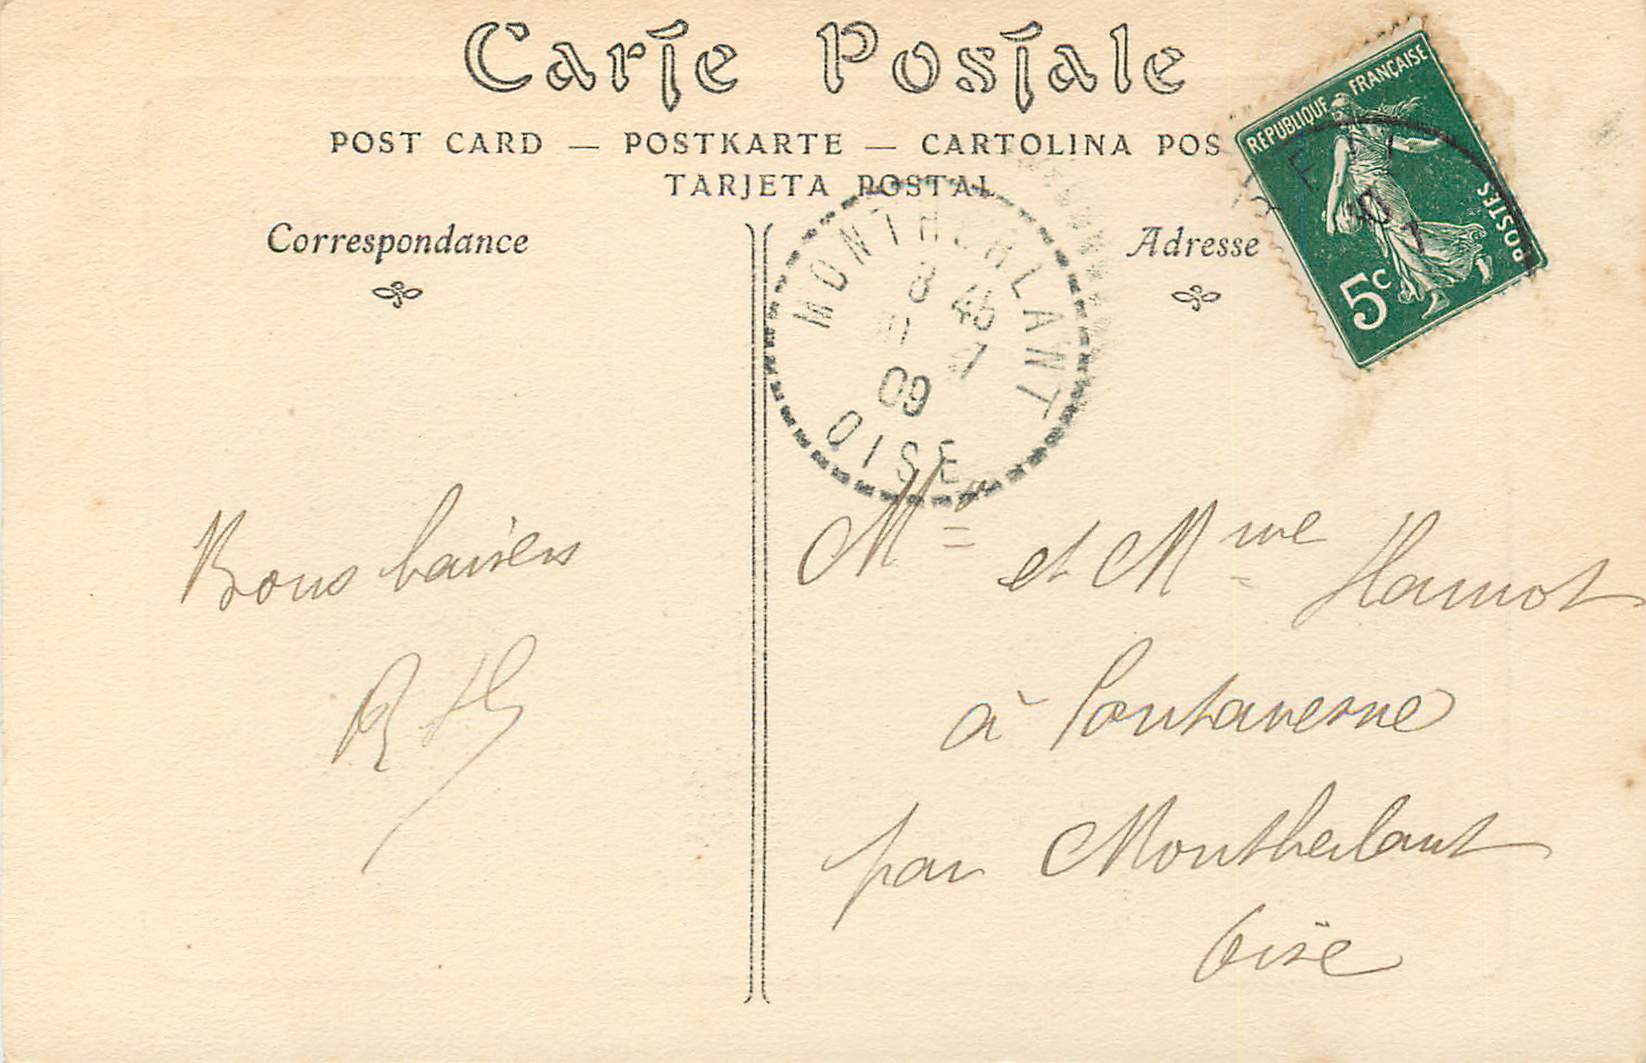 Carte Postale
POST CARD — POSTKARTE — CARTOLINA POS
TARJETA POSTAL
Correspondance
Adresse
REPUBLIQUE FRANÇAISE
POSTES
5c
MONTHERLANT
8 45
7
09
OISE
Bons baisers
RH
Mr et Mme Hamot
à Pontavesne
par Montherlant
Oise